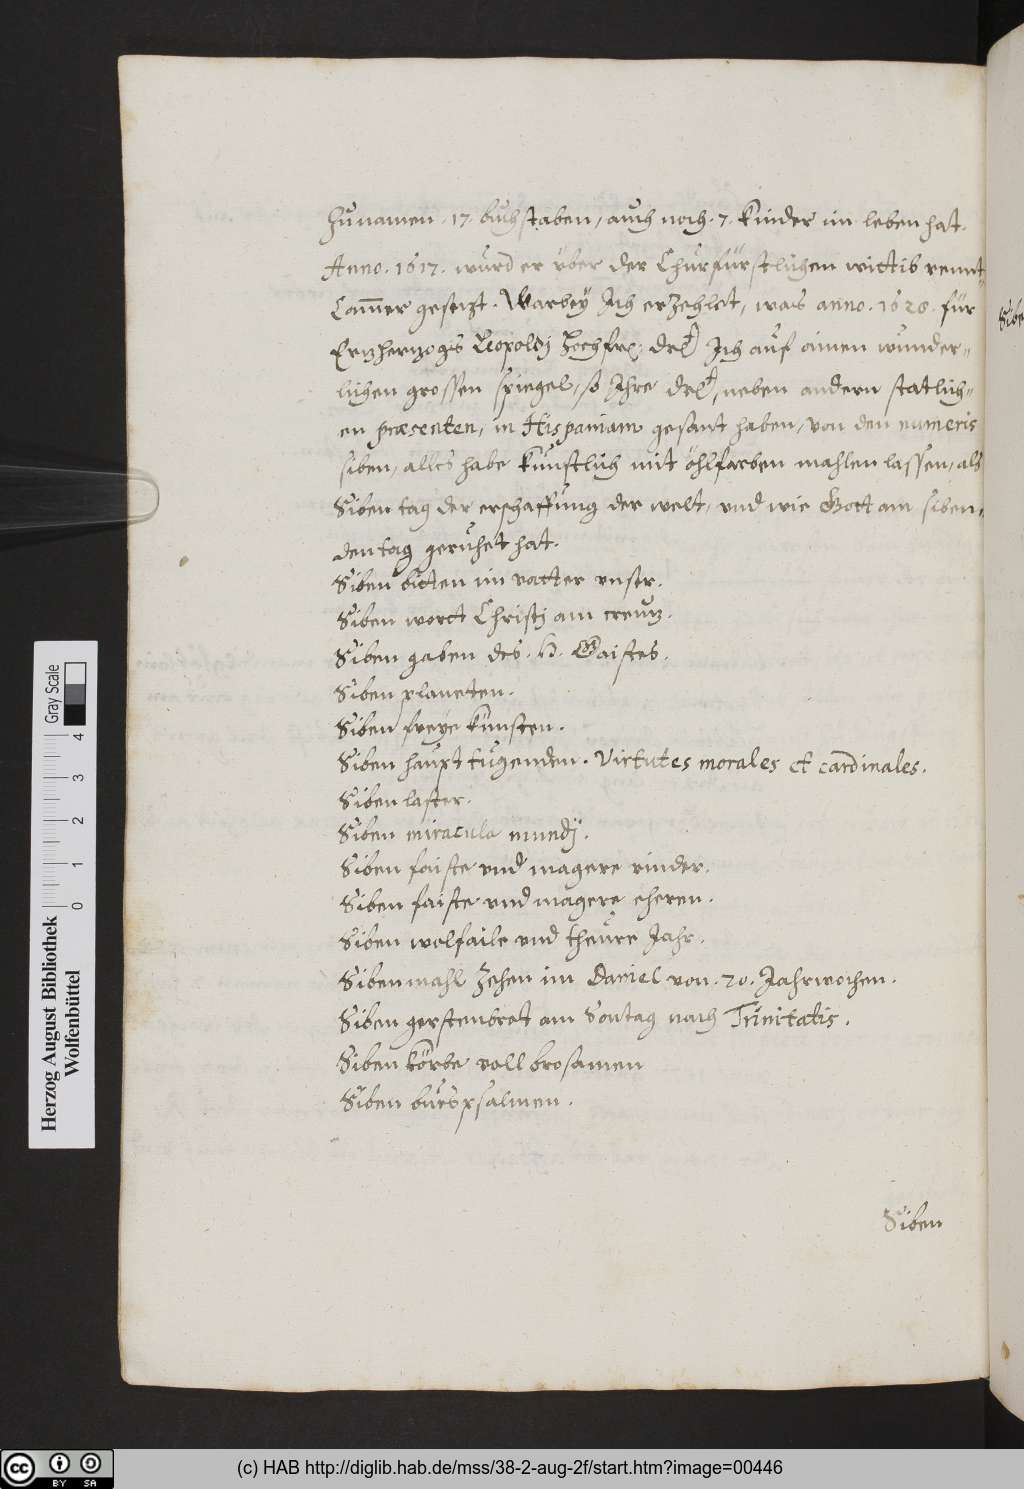 Zunamen . 17. buchstaben, auch noch . 7. kinder im leben hat.
Anno . 1617 . wurd er vber der Churfürstlichen wittib rennt=
Camer gesetzt . Warbeÿ Ich erzehlet, was anno . 1628 . für
Ertzhertzogs Leopoldj Hochfrl: Drl: Ich auf ainen wunder=
lichen grossen spiegel, so Ihre Drl:, neben andern statlich=
en præsenten, in Hispaniam gesant haben, von den numeris
siben, alles habe kunstlich mit öhlfarben mahlen lassen, als
Siben tag der erschaffung der welt, vnd wie Gott am siben=
den tag geruhet hat.
Siben bitten im vatter vnser.
Siben wortt Christj am creutz.
Siben gaben des . H . Gaistes.
Siben planeten.
Siben freÿe künsten.
Siben haupt tugenden . Virtutes morales et cardinales.
Siben laster.
Siben miracula mundj.
Siben faiste vnd magere rinder.
Siben faiste vnd magere eheren.
Siben wolfaile vnd theure Jahr.
Siben mahl Zehen im Daniel von . 70 . Jahrwochen.
Siben gerstenbrot am Sontag nach Trinitatis.
Siben körbe voll brosamen
Siben buespsalmen.
Siben
Sibe
Herzog August Bibliothek
Wolfenbüttel
0 1 2 3 4
Gray Scale
cc BY SA
(c) HAB http://diglib.hab.de/mss/38-2-aug-2f/start.htm?image=00446